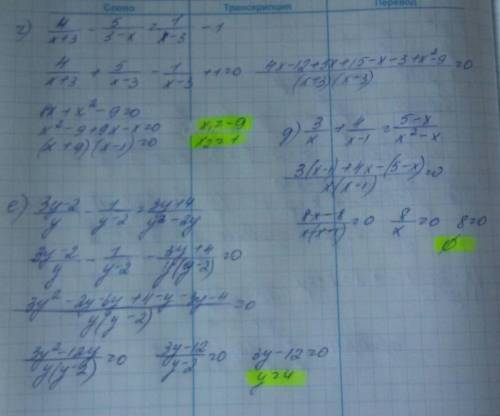 Слово Транскрипция Перевод
г) 4/(x+3) - 5/(3-x) = 1/(x-3) - 1
4/(x+3) + 5/(x-3) - 1/(x-3) + 1 = 0 (4x-12+5x+15-x-3+x²-9)/((x+3)(x-3)) = 0
8x+x²-9=0
x²-9+9x-x=0 x₁=-9
(x+9)(x-1)=0 x₂=1
д) 3/x + 4/(x-1) = (5-x)/(x²-x)
(3(x-1)+4x-(5-x))/(x(x-1)) = 0
(8x-8)/(x(x-1)) = 0 8/x = 0 8=0
∅
е) (3y-2)/y - 1/(y-2) = (3y+4)/(y²-2y)
(3y-2)/y - 1/(y-2) - (3y+4)/(y(y-2)) = 0
(3y²-2y-6y+4-y-3y-4)/(y(y-2)) = 0
(3y²-12y)/(y(y-2)) = 0 (3y-12)/(y-2) = 0 3y-12=0
y=4